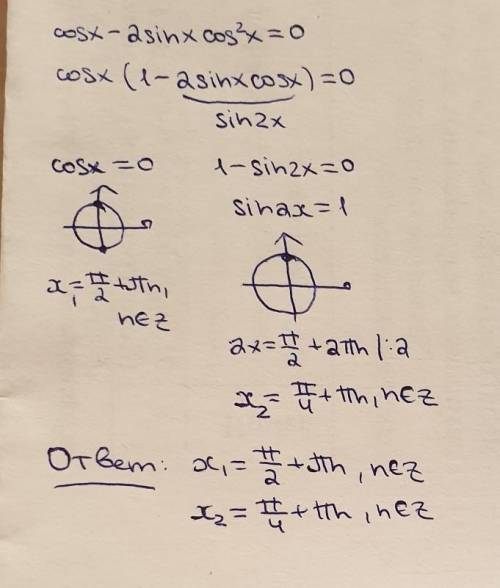 cosx - 2sinx cos²x = 0
cosx (1 - 2sinxcosx) = 0
sin2x
cosx = 0
x₁ = π/2 + πn,
n∈z
1 - sin2x = 0
sin2x = 1
2x = π/2 + 2πn |:2
x₂ = π/4 + πn, n∈z
Ответ: x₁ = π/2 + πn, n∈z
x₂ = π/4 + πn, n∈z